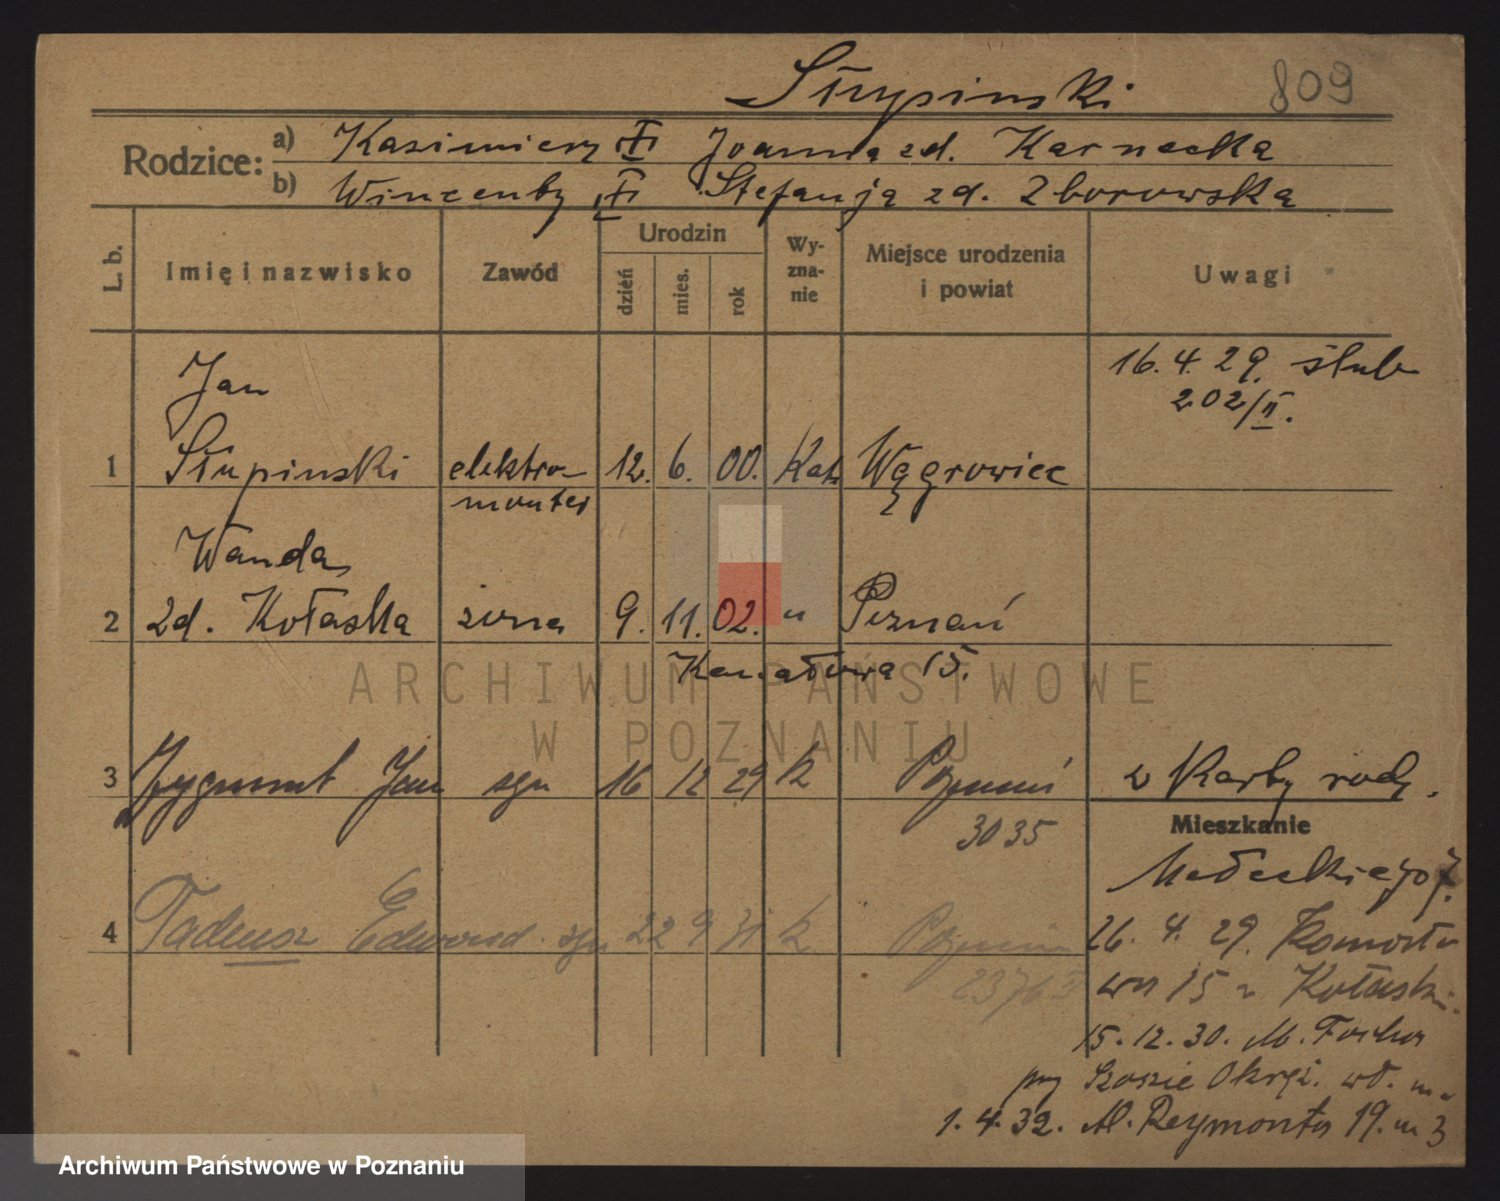 Słupinski
809
Rodzice:
a) Kasimierz Joanna zd. Karnecka
b) Wincenty Stefanja zd. Zborowska
L. b.
Imię i nazwisko
Zawód
Urodzin
dzień
mies.
rok
Wy-
zna-
nie
Miejsce urodzenia
i powiat
Uwagi
16. 4. 29. ślub
202/II.
Jan
1 Słupinski elektro- 12. 6. 00. Kat. Wągrowiec
monter
Wanda
2 zd. Kołaska żona 9. 11. 02. " Poznań
15.
3 Zygmunt Jan syn 16 12 29 k Poznań z Karty rodz.
3035
Mieszkanie
Małeckiego 7.
4 Tadeusz Edward syn 22 9 31 k Poznań
26. 4. 29.
15 Kołaski
15. 12. 30. M. Focha
przy Szosie Okręż. wł. m.
1. 4. 32. Al. Reymonta 19. m 3
ARCHIWUM PAŃSTWOWE
W POZNANIU
Archiwum Państwowe w Poznaniu